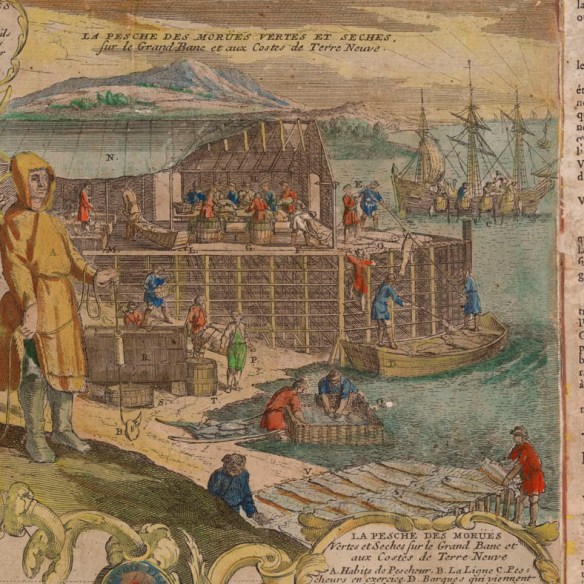 LA PESCHE DES MORUES VERTES ET SECHES,
sur le Grand Banc et aux Costes de Terre Neuve.
N.
E
A
C
M
L
G
F
O
D
R
P
S
T
B
Q
V
LA PESCHE DES MORUES
Vertes et Seches sur le Grand Banc et
aux Costes de Terre Neuve
A. Habits de Pescheur. B. La Ligne C. Pes-
cheurs en exercice. D. Barques qui viennent